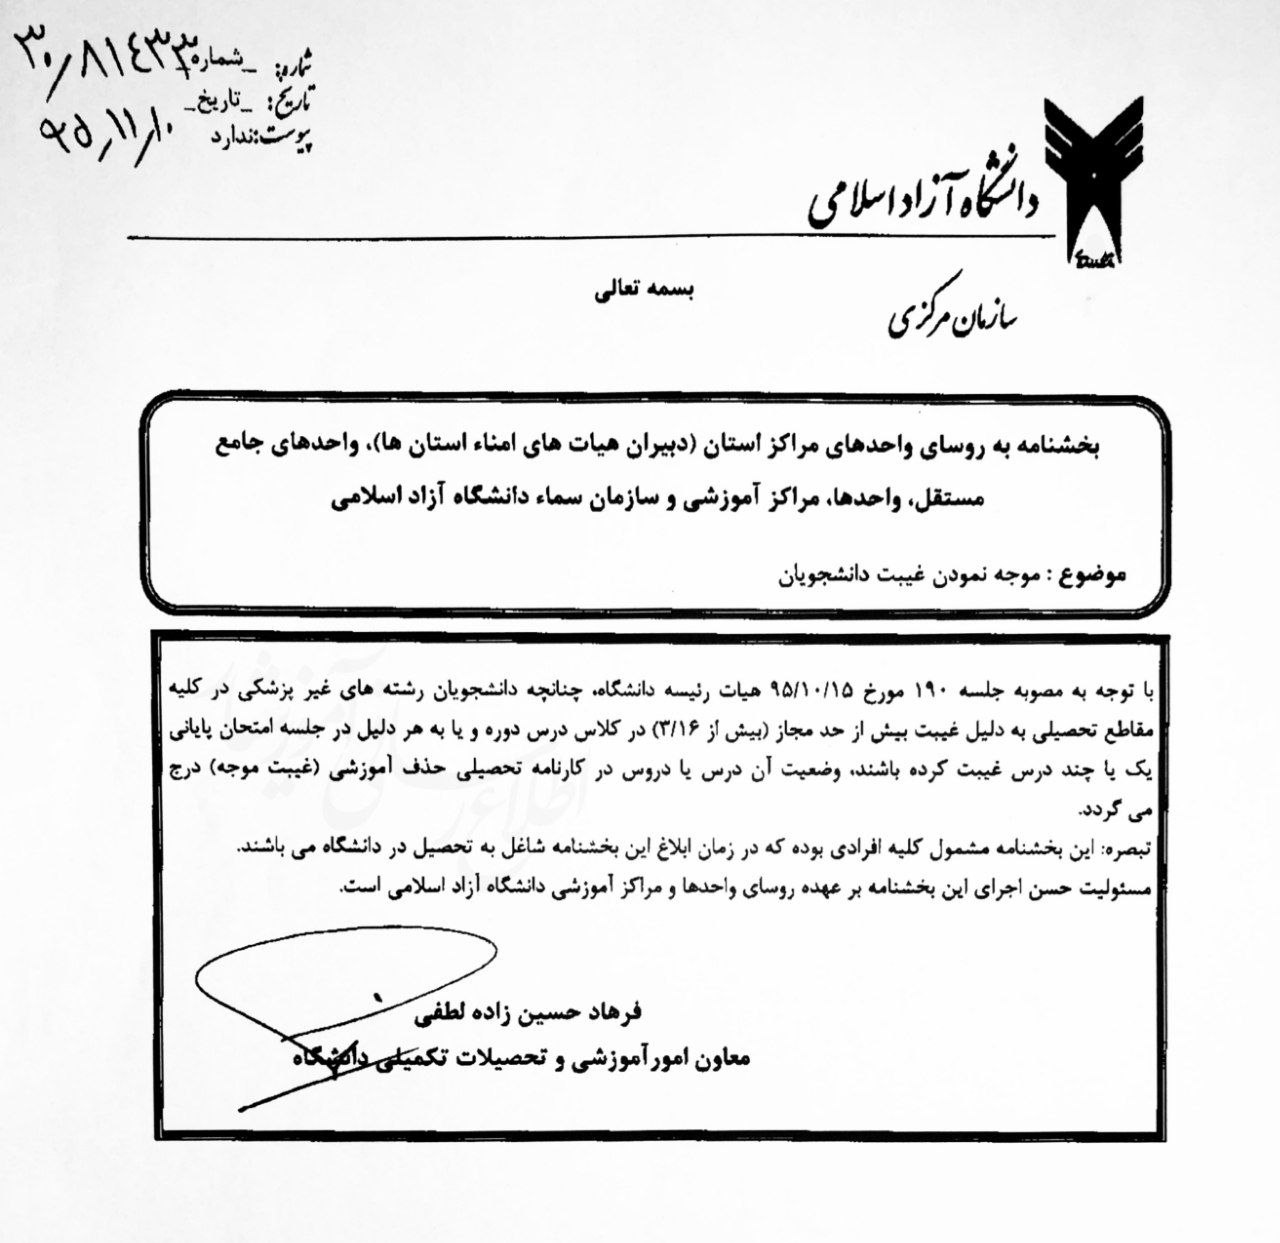 شماره: _شماره_ ۳۰/۸۱۴۳۳
تاریخ: _تاریخ_ ۹۵/۱۱/۱۰
پیوست:ندارد
دانشگاه آزاد اسلامی
سازمان مرکزی
بسمه تعالی
بخشنامه به روسای واحدهای مراکز استان (دبیران هیات های امناء استان ها)، واحدهای جامع
مستقل، واحدها، مراکز آموزشی و سازمان سماء دانشگاه آزاد اسلامی
موضوع : موجه نمودن غیبت دانشجویان
با توجه به مصوبه جلسه ۱۹۰ مورخ ۹۵/۱۰/۱۵ هیات رئیسه دانشگاه، چنانچه دانشجویان رشته های غیر پزشکی در کلیه
مقاطع تحصیلی به دلیل غیبت بیش از حد مجاز (بیش از ۳/۱۶) در کلاس درس دوره و یا به هر دلیل در جلسه امتحان پایانی
یک یا چند درس غیبت کرده باشند، وضعیت آن درس یا دروس در کارنامه تحصیلی حذف آموزشی (غیبت موجه) درج
می گردد.
تبصره: این بخشنامه مشمول کلیه افرادی بوده که در زمان ابلاغ این بخشنامه شاغل به تحصیل در دانشگاه می باشند.
مسئولیت حسن اجرای این بخشنامه بر عهده روسای واحدها و مراکز آموزشی دانشگاه آزاد اسلامی است.
فرهاد حسین زاده لطفی
معاون امور آموزشی و تحصیلات تکمیلی دانشگاه